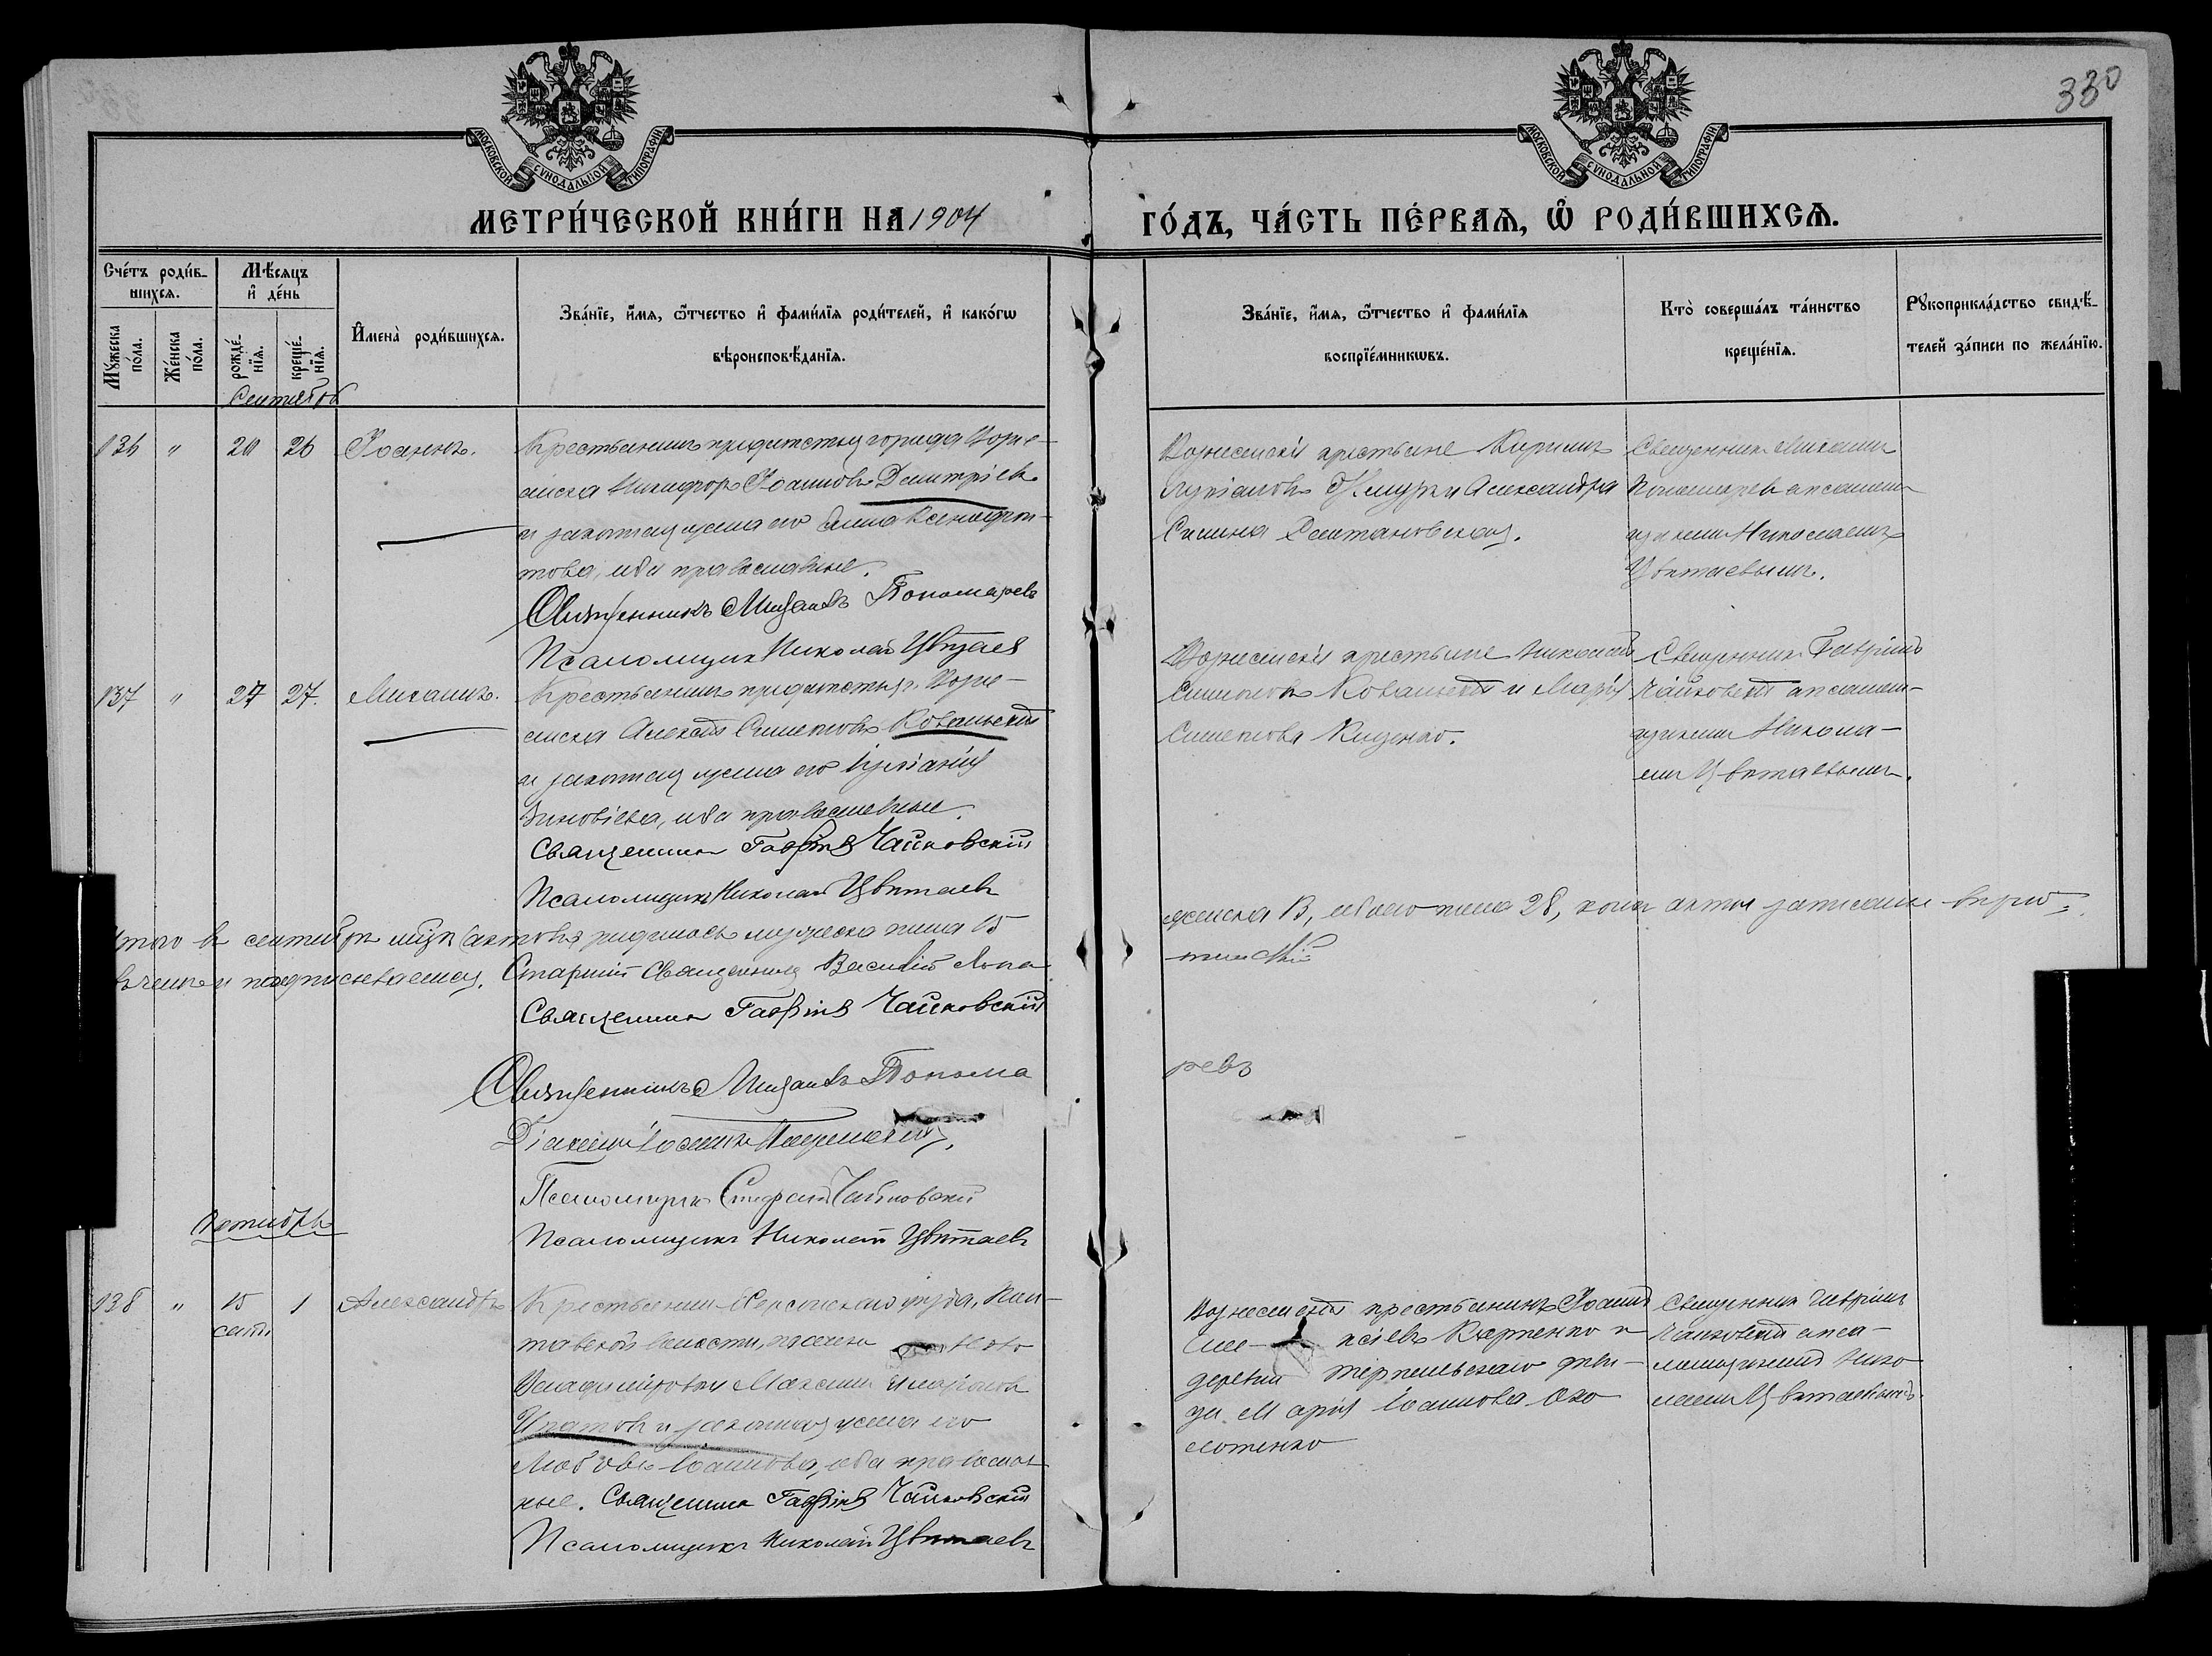 330
МОСКОВСКОЙ СѴНОДАЛЬНОЙ ТИПОГРАФІИ
МОСКОВСКОЙ СѴНОДАЛЬНОЙ ТИПОГРАФІИ
МЕТРИ́ЧЕСКОЙ КНИ́ГИ НА 1904 ГО́ДЪ, ЧА́СТЬ ПЕ́РВАЯ, Ѿ РОДИ́ВШИХСЯ.
Сче́тъ роди́в-
шихся.
Мѣ́сяцъ
и҆ де́нь
Мꙋ́жеска
по́ла.
Же́нска
по́ла.
рожде́-
нїя.
креще́-
нїя.
И҆мена̀ роди́вшихся.
Зва́нїе, и҆́мя, ѻ҆́тчество и҆ фами́лїя роди́телей, и҆ како́гѡ
вѣроисповѣ́данїя.
Зва́нїе, и҆́мя, ѻ҆́тчество и҆ фами́лїя
воспрїе́мникѡвъ.
Кто̀ соверша́лъ та́инство
креще́нїя.
Рꙋкоприкла́дство свидѣ́-
телей за́писи по жела́нїю.
Сентябрь
136 " 20 26 Іоаннъ.
Крестьянинъ предместья города Возне-
сенска Никифоръ Іоанновъ Димитріевъ
и законная жена его Анна Ксенофон-
това, оба православные.
Священникъ Михаилъ Пономаревъ
Псаломщикъ Николай Цвѣтаев
Вознесенскіе крестьяне Кириллъ
Лукіановъ и Александра
Симина
Священникъ Михаилъ
Пономаревъ с псалом-
щикомъ Николаемъ
Цвѣтаевымъ.
137 " 27 27. Михаилъ.
Крестьянинъ предместья г. Возне-
сенска Алексѣй Симеоновъ Ковальскій
и законная жена его
Зиновіева, оба православные.
Священникъ Гавріилъ Чайковскій
Псаломщикъ Николай Цвѣтаевъ
Вознесенскіе крестьяне Николай
Симеоновъ Ковальскій и Марія
Симеонова Киценко.
Священникъ Гавріилъ
Чайковскій с псалом-
щикомъ Никола-
емъ Цвѣтаевымъ.
Итого въ сентябрѣ мцѣ родилось мужеска пола 15
женска 13, обоего пола 28, коихъ акты записаны вѣрно
въ чемъ и подписываемся. Старшій Священникъ Василій Лопа-
тинскій
Священникъ Гавріилъ Чайковскій
Священникъ Михаилъ Понома
ревъ
Діаконъ
Псаломщикъ Стефанъ Чайковскій
Псаломщикъ Николай Цвѣтаевъ
Октябрь
138 " 15 1 Александръ
сент.
Крестьянинъ Херсонскаго уѣзда,
волости, поселка Ново
Владиміровки Максимъ Иларіоновъ
Игнатовъ и законная жена его
Любовь Іоаннова, оба православ-
ные. Священникъ Гавріилъ Чайковскій
Псаломщикъ Николай Цвѣтаевъ
Вознесенскій крестьянинъ Іоаннъ
Карпенко и
деревни
Марія Іоаннова
Священникъ Гавріилъ
Чайковскій с пса-
ломщикомъ Нико-
лаемъ Цвѣтаевымъ.